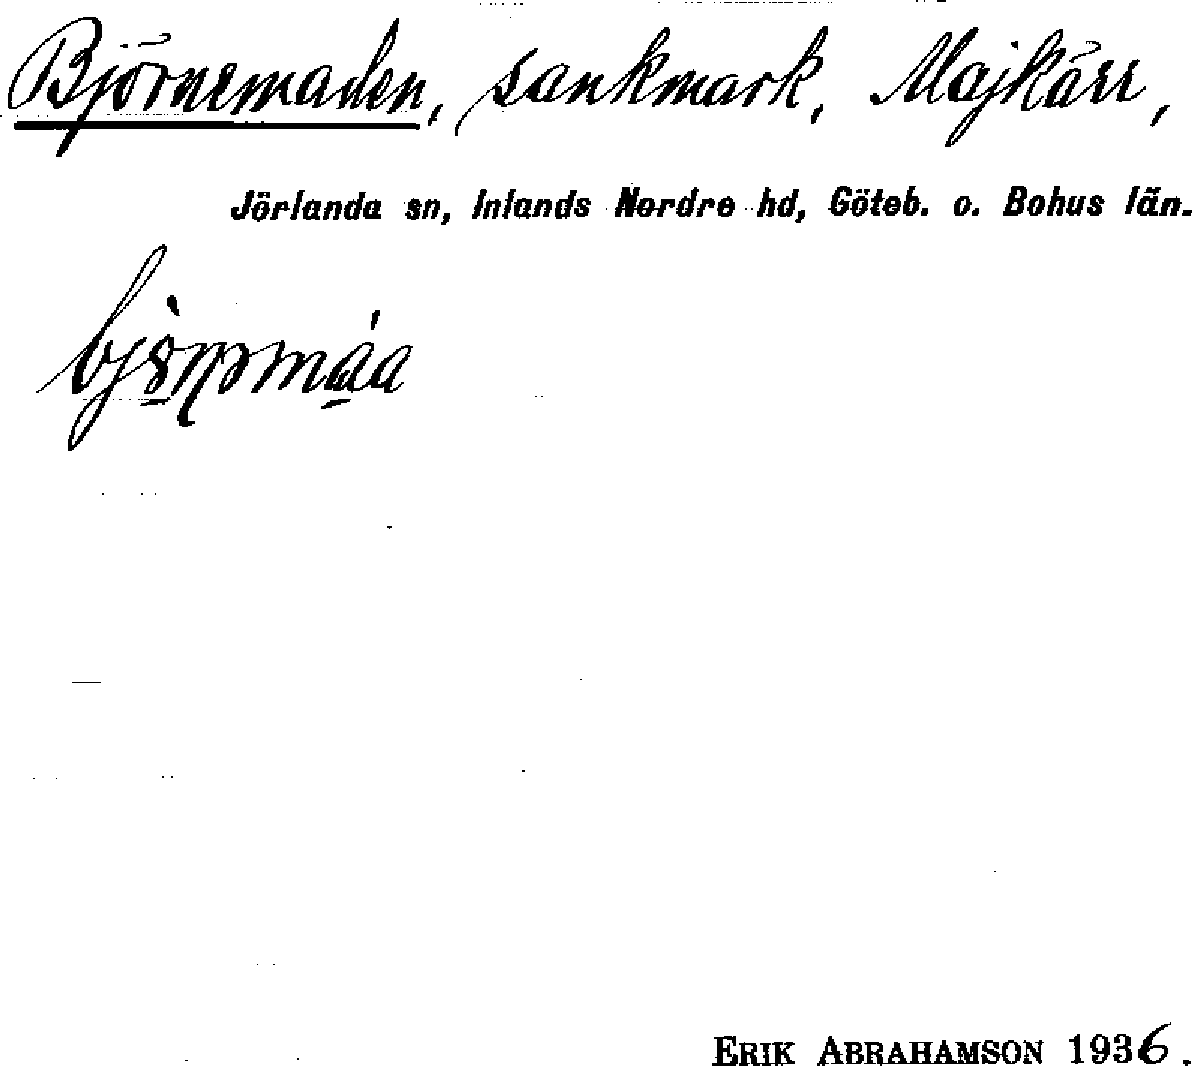 Björnemaden, sankmark, Majkärr,
Jörlanda sn, Inlands Nordre hd, Göteb. o. Bohus län.
ERIK ABRAHAMSON 1936.